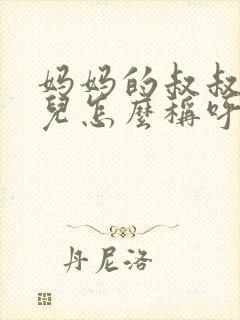 妈妈的叔叔
兒怎麼稱呼
丹尼洛